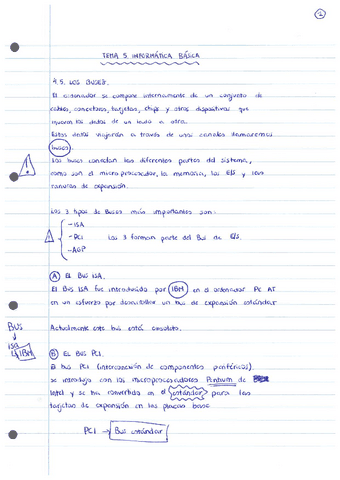 1
TEMA 5. INFORMÁTICA BÁSICA
4.5. LOS BUSES.
El ordenador se compone internamente de un conjunto de
cables, conectores, tarjetas, chips y otros dispositivos que
mueven los datos de un lado a otro.
Estos datos viajarán a través de unos canales llamaremos
buses.
Los buses conectan las diferentes partes del sistema,
como son el microprocesador, la memoria, las E/S y las
ranuras de expansión.
Los 3 tipos de Buses más importantes son:
- ISA
- PCI Los 3 forman parte del Bus de E/S.
- AGP
A El Bus ISA.
El Bus ISA fue introducido por IBM en el ordenador PC AT
en un esfuerzo por desarrollar un bus de expansión estándar
Actualmente este bus está obsoleto.
BUS
ISA
IBM
B El BUS PCI.
El bus PCI (interconexión de componentes periféricos)
se introdujo con los microprocesadores Pentium de
Intel y se ha convertido en el estándar para las
tarjetas de expansión en las placas base
PCI → Bus estándar